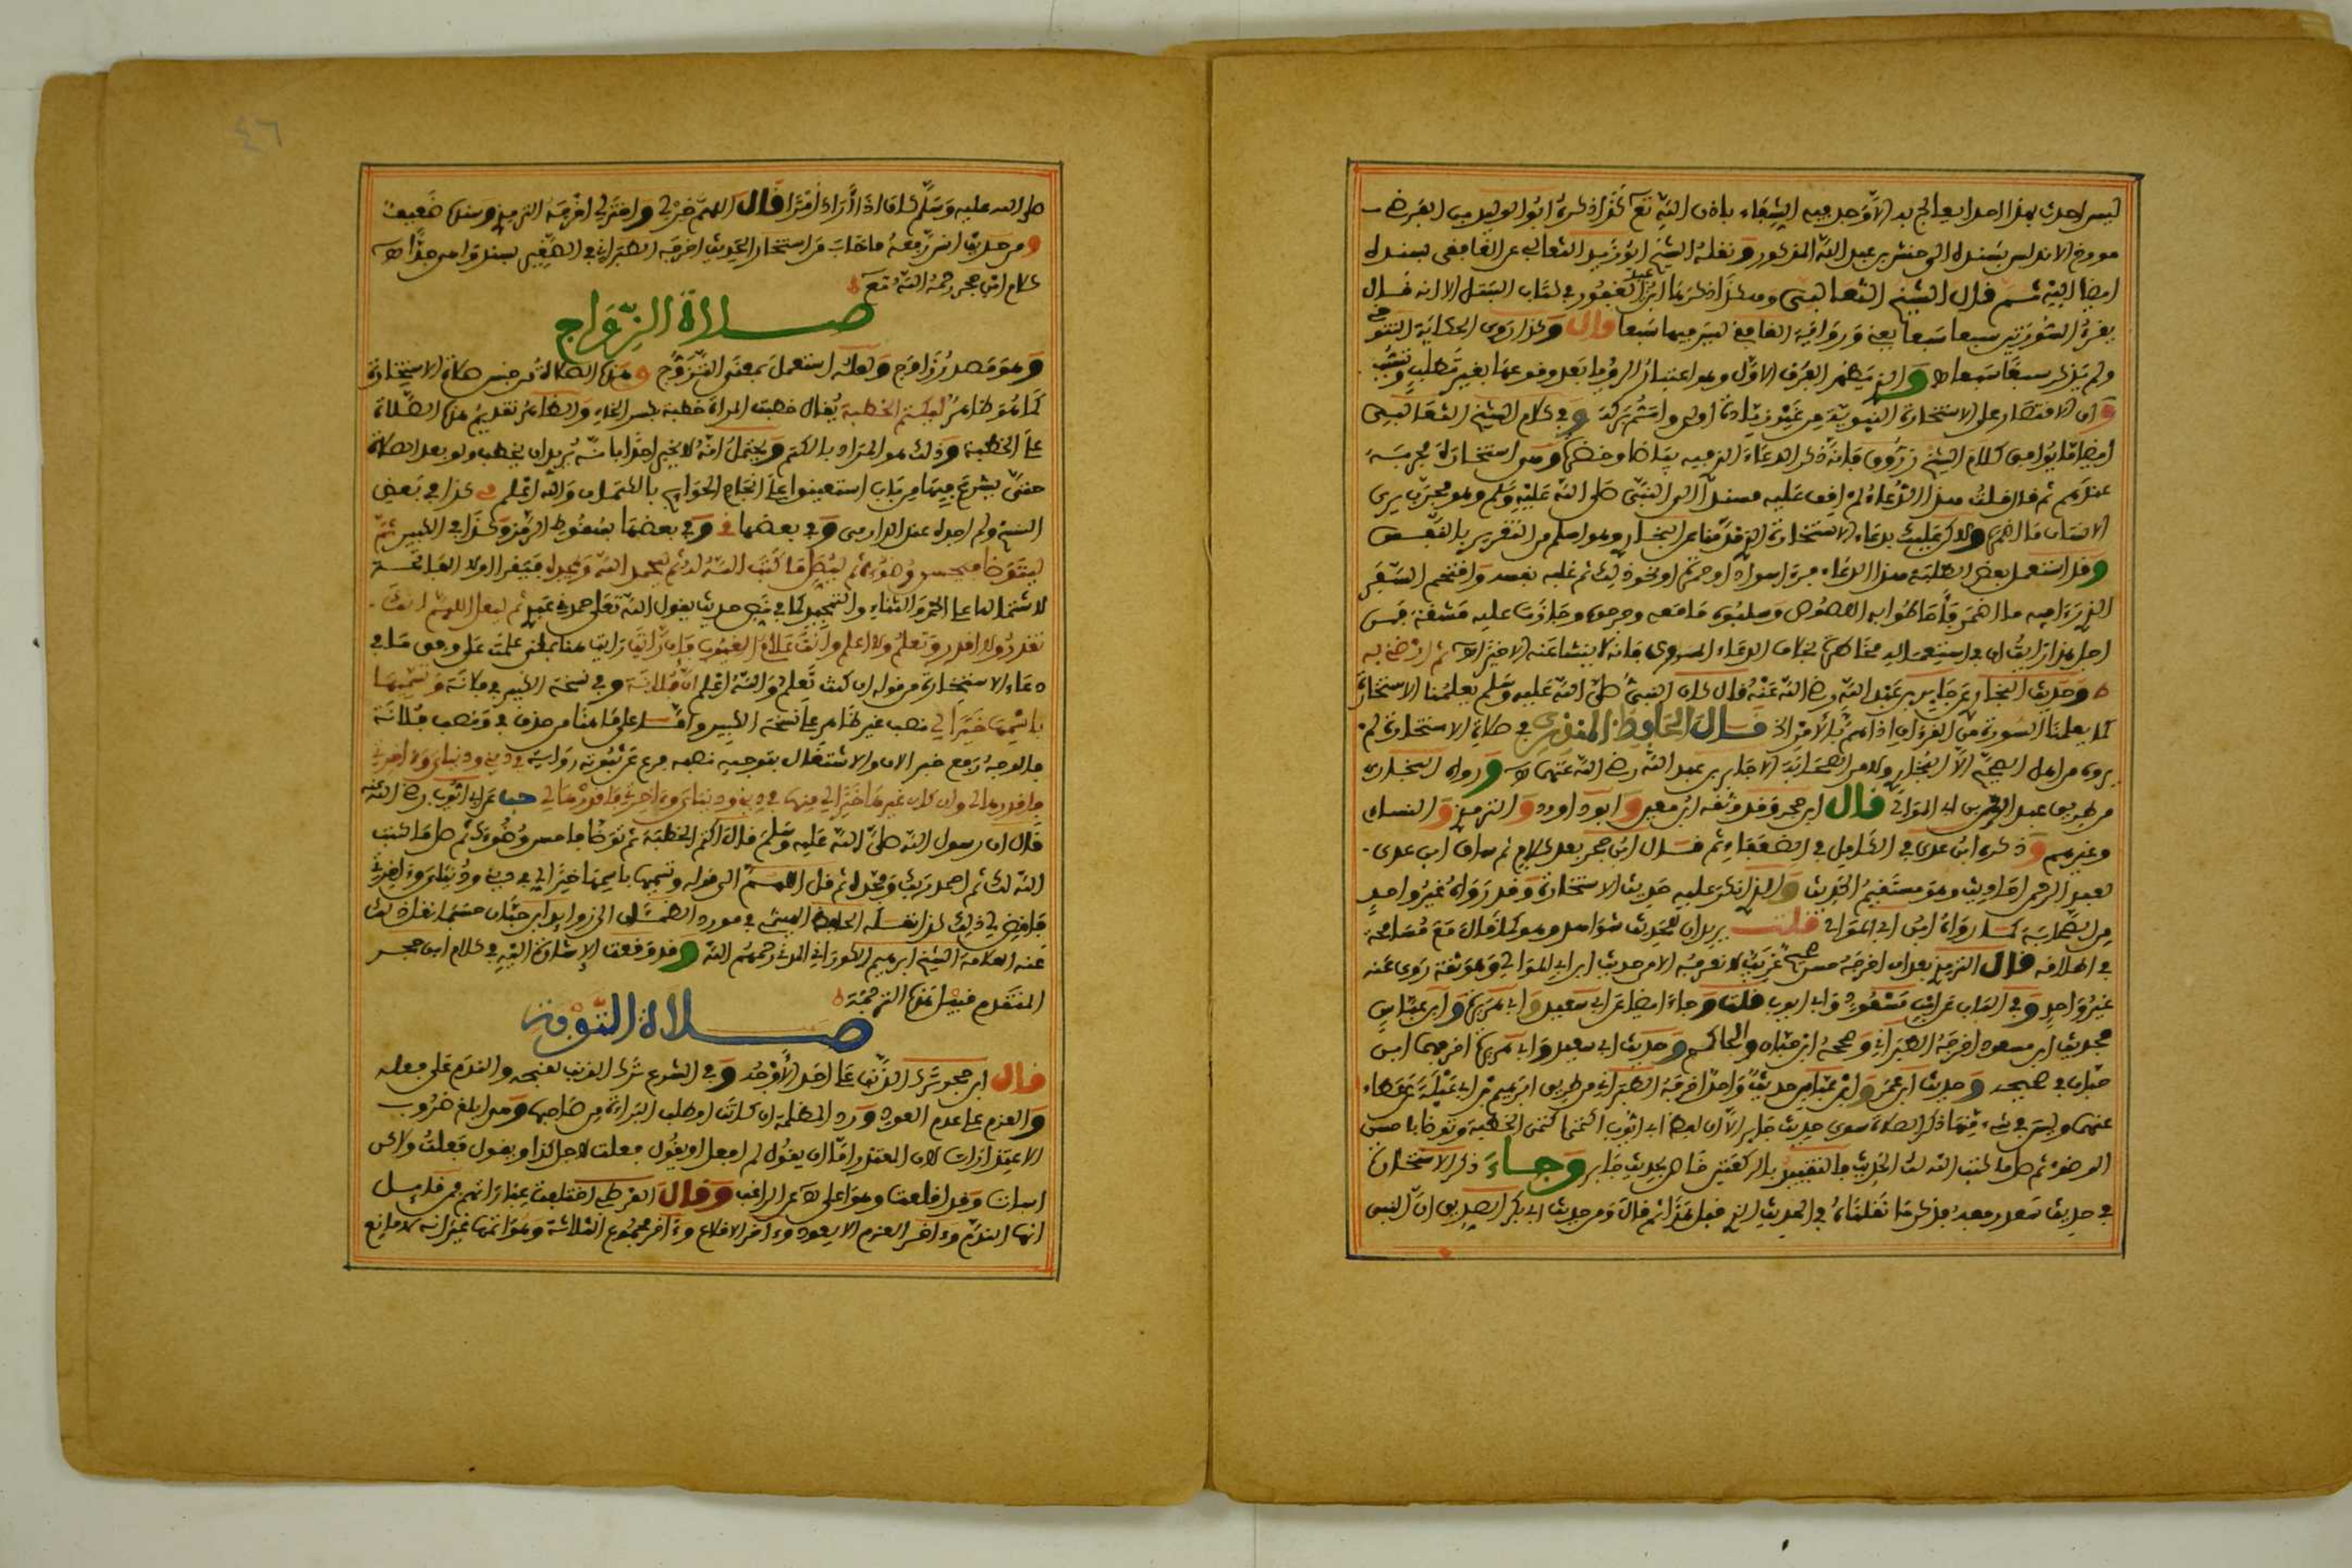 ليس احدث بهذا احد ايعالج به الا وجد فيه الشفاء باذن الله تع كذا ذكره ابو الوليد بن الفرضي
مورخ الاندلس بسنده الى حنش بن عبد الله المذكور ونقله الشيخ ابو زيد الثعالبي عن الغافقي بسنده
ايضا اليه ثم قال الشيخ الثعالبي وهكذا ذكرها ابن عبد الغفور في كتاب السبل الا انه قال
يقرء السورتين سبعا سبعا يعني ورواية الغافقي ليس فيها سبعا قال وكذا روى الحكاية التنوخي
ولم يذكر سبعا سبعا والذي يظهر الفرق الاول وهو اعتبار الرؤيا بعد وقوعها بغير تطلب
وان الاقتصار على الاستخارة النبوية من غير زيادة اولى واتم بركة وفي كلام الشيخ الثعالبي
ايضا ما يوافق كلام الشيخ زروق فانه ذكر الدعاء الذي فيه بياضا وخضرة وهو استخارة مجربة
عندهم ثم قال قلت هذا الدعاء لم اقف عليه مسندا الى النبي صلى الله عليه وسلم وهو مجرب يرى
الانسان ما اهمه ولكن عليك بدعاء الاستخارة الذي قدمنا عن البخاري وهو اسلم من التغرير بالنفس
وقد استعمل بعض الطلبة هذا الدعاء فرءا سوادا وحمرة او نحو ذلك ثم غلبه نفسه واقتحم السفر
الذي رءا فيه ما اهمه فاحاطوا به اللصوص وسلبوه ما معه وجرحوه وجازت عليه مشقة فمن
اجل هذا رايت ان في استعماله مخاطرة بخلاف الدعاء المروي فانه لا ينشا عنه الا خير اه ثم ارضني به
وحديث البخاري عن جابر بن عبد الله رضي الله عنه قال كان النبي صلى الله عليه وسلم يعلمنا الاستخارة
كما يعلمنا السورة من القرءان اذا هم بالامر الخ قال الحافظ المنذري في صلاة الاستخارة لم
يروه من اهل الصحيح الا البخاري ولا من الصحابة الا جابر بن عبد الله رضي الله عنهما اه ورواه البخاري
من طريق عبد الرحمن بن ابي الموالي قال ابن حجر وقد وثقه ابن معين وابو داوود والترمذي والنسائي
وغيرهم وذكره ابن عدي في الكامل في الضعفاء ثم قال ابن حجر بعد كلام ثم ساق ابن عدي
لعبد الرحمن احاديث وهو مستقيم الحديث والذي انكر عليه حديث الاستخارة وقد رواه غير واحد
من الصحابة كما رواه ابن ابي الموالي قلت يريد ان للحديث شواهد وهو كما قال مع مسامحة
في اطلاقه قال الترمذي بعد ان اخرجه حسن صحيح غريب لا نعرفه الا من حديث ابن ابي الموالي وهو ثقة روى عنه
غير واحد وفي الباب عن ابن مسعود وابي ايوب قلت وجاء ايضا عن ابي سعيد وابي هريرة وابن عباس
فحديث ابن مسعود اخرجه الطبراني وصححه ابن حبان والحاكم وحديث ابي سعيد وابي هريرة اخرجهما ابن
حبان في صحيحه وحديث ابن عمر وابن عباس حديث واحد اخرجه الطبراني من طريق ابراهيم بن ابي عبلة عن عطاء
عنهما وليس في شيء منها ذكر الصلاة سوى حديث جابر الا ان لفظ ابي ايوب اكتم الخطبة وتوضا فاحسن
الوضوء ثم صل ما كتب الله لك الحديث فالتقييد بالركعتين خاص بحديث جابر وجاء ذكر الاستخارة
في حديث سعد رفعه فذكر ما نقلناه في الحديث الذي قبل هذا ثم قال ومن حديث ابي بكر الصديق ان النبي
صلى الله عليه وسلم كان اذا اراد امرا قال اللهم خر لي واختر لي اخرجه الترمذي وسنده ضعيف
ومن حديث انس رفعه ما خاب من استخار الحديث اخرجه الطبراني في الصغير بسند واه جدا اه
كلام ابن حجر رحمه الله تع
صلاة الزواج
وهو مصدر زاوج ولعله استعمل بمعنى التزوج وهذه الصلاة من جنس صلاة الاستخارة
كما هو ظاهر ليكتم الخطبة يقال خطبت المراة خطبة بكسر الخاء والظاهر تقديم هذه الصلاة
على الخطبة وذلك هو المراد بالكتم ويحتمل انه لا يخبر احدا بانه يريد ان يخطب ولو بعد الصلاة
حتى يشرع فيها من باب استعينوا على انجاح الحوايج بالكتمان والله اعلم مي كذا في بعض
النسخ ولم اجده عند الدارمي وفي بعضها في وفي بعضها بسقوط الرمز وكذا في الكبير ثم
ليتوضا فيحسن وضوءه ثم ليصل ما كتب الله له ثم ليحمد الله ويمجده فيقرا اولا الفاتحة
لاشتمالها على الحمد والثناء والتمجيد كما في نص حديث يقول الله تعالى حمدني عبدي ثم ليقل اللهم انك
تقدر ولا اقدر وتعلم ولا اعلم وانت علام الغيوب فان رايت رايت هنا بمعنى علمت على وفق ما في
دعاء الاستخارة من قوله ان كنت تعلم والله اعلم ان فلانة وفي نسخة الكبير في فلانة وتسميها
باسمها خيرا لي نصب غير ظاهر على نسخة الكبير واما على ما هنا من حذف في ونصب فلانة
فالوجه رفع خبر ان والاشتغال بتوجيه نصبه فرع عن ثبوته رواية في ديني ودنياي وءاخرتي
فاقدرها لي وان كان غيرها خيرا لي منها في ديني ودنياي وءاخرتي فاقدرها لي حب عن ابي ايوب رضي الله عنه
قال ان رسول الله صلى الله عليه وسلم قال اكتم الخطبة ثم توضا فاحسن وضوءك ثم صل ما كتب
الله لك ثم احمد ربك ومجده ثم قل اللهم الى قوله وتسميها باسمها خيرا لي في ديني ودنياي وءاخرتي
فاقض لي ذلك كذا نقله الحافظ الهيثمي في موارد الظمئان الى زوايد ابن حبان حسبما نقل ذلك
عنه العلامة الشيخ ابرهيم الكوراني المدني رحمهم الله وقد وقعت الاشارة اليه في كلام ابن حجر
المتقدم قبيل هذه الترجمة
صلاة التوبة
قال ابن حجر ترك الذنب على احد الاوجه وفي الشرع ترك الذنب لقبحه والندم على فعله
والعزم على عدم العود ورد المظلمة ان كانت او طلب البراءة من صاحبها وهو ابلغ ضروب
الاعتذارات لان المعتذر اما ان يقول لم افعل او يقول فعلت لاجل كذا او يقول فعلت ولاكن
اسات وقد اقلعت وهو اعلى اه عن الراغب وقال القرطبي اختلفت عبارتهم فمن قايل
انها الندم وءاخر العزم الا يعود وءاخر الاقلاع وءاخر مجموع الثلاثة وهو اتمها غير انه لا مانع